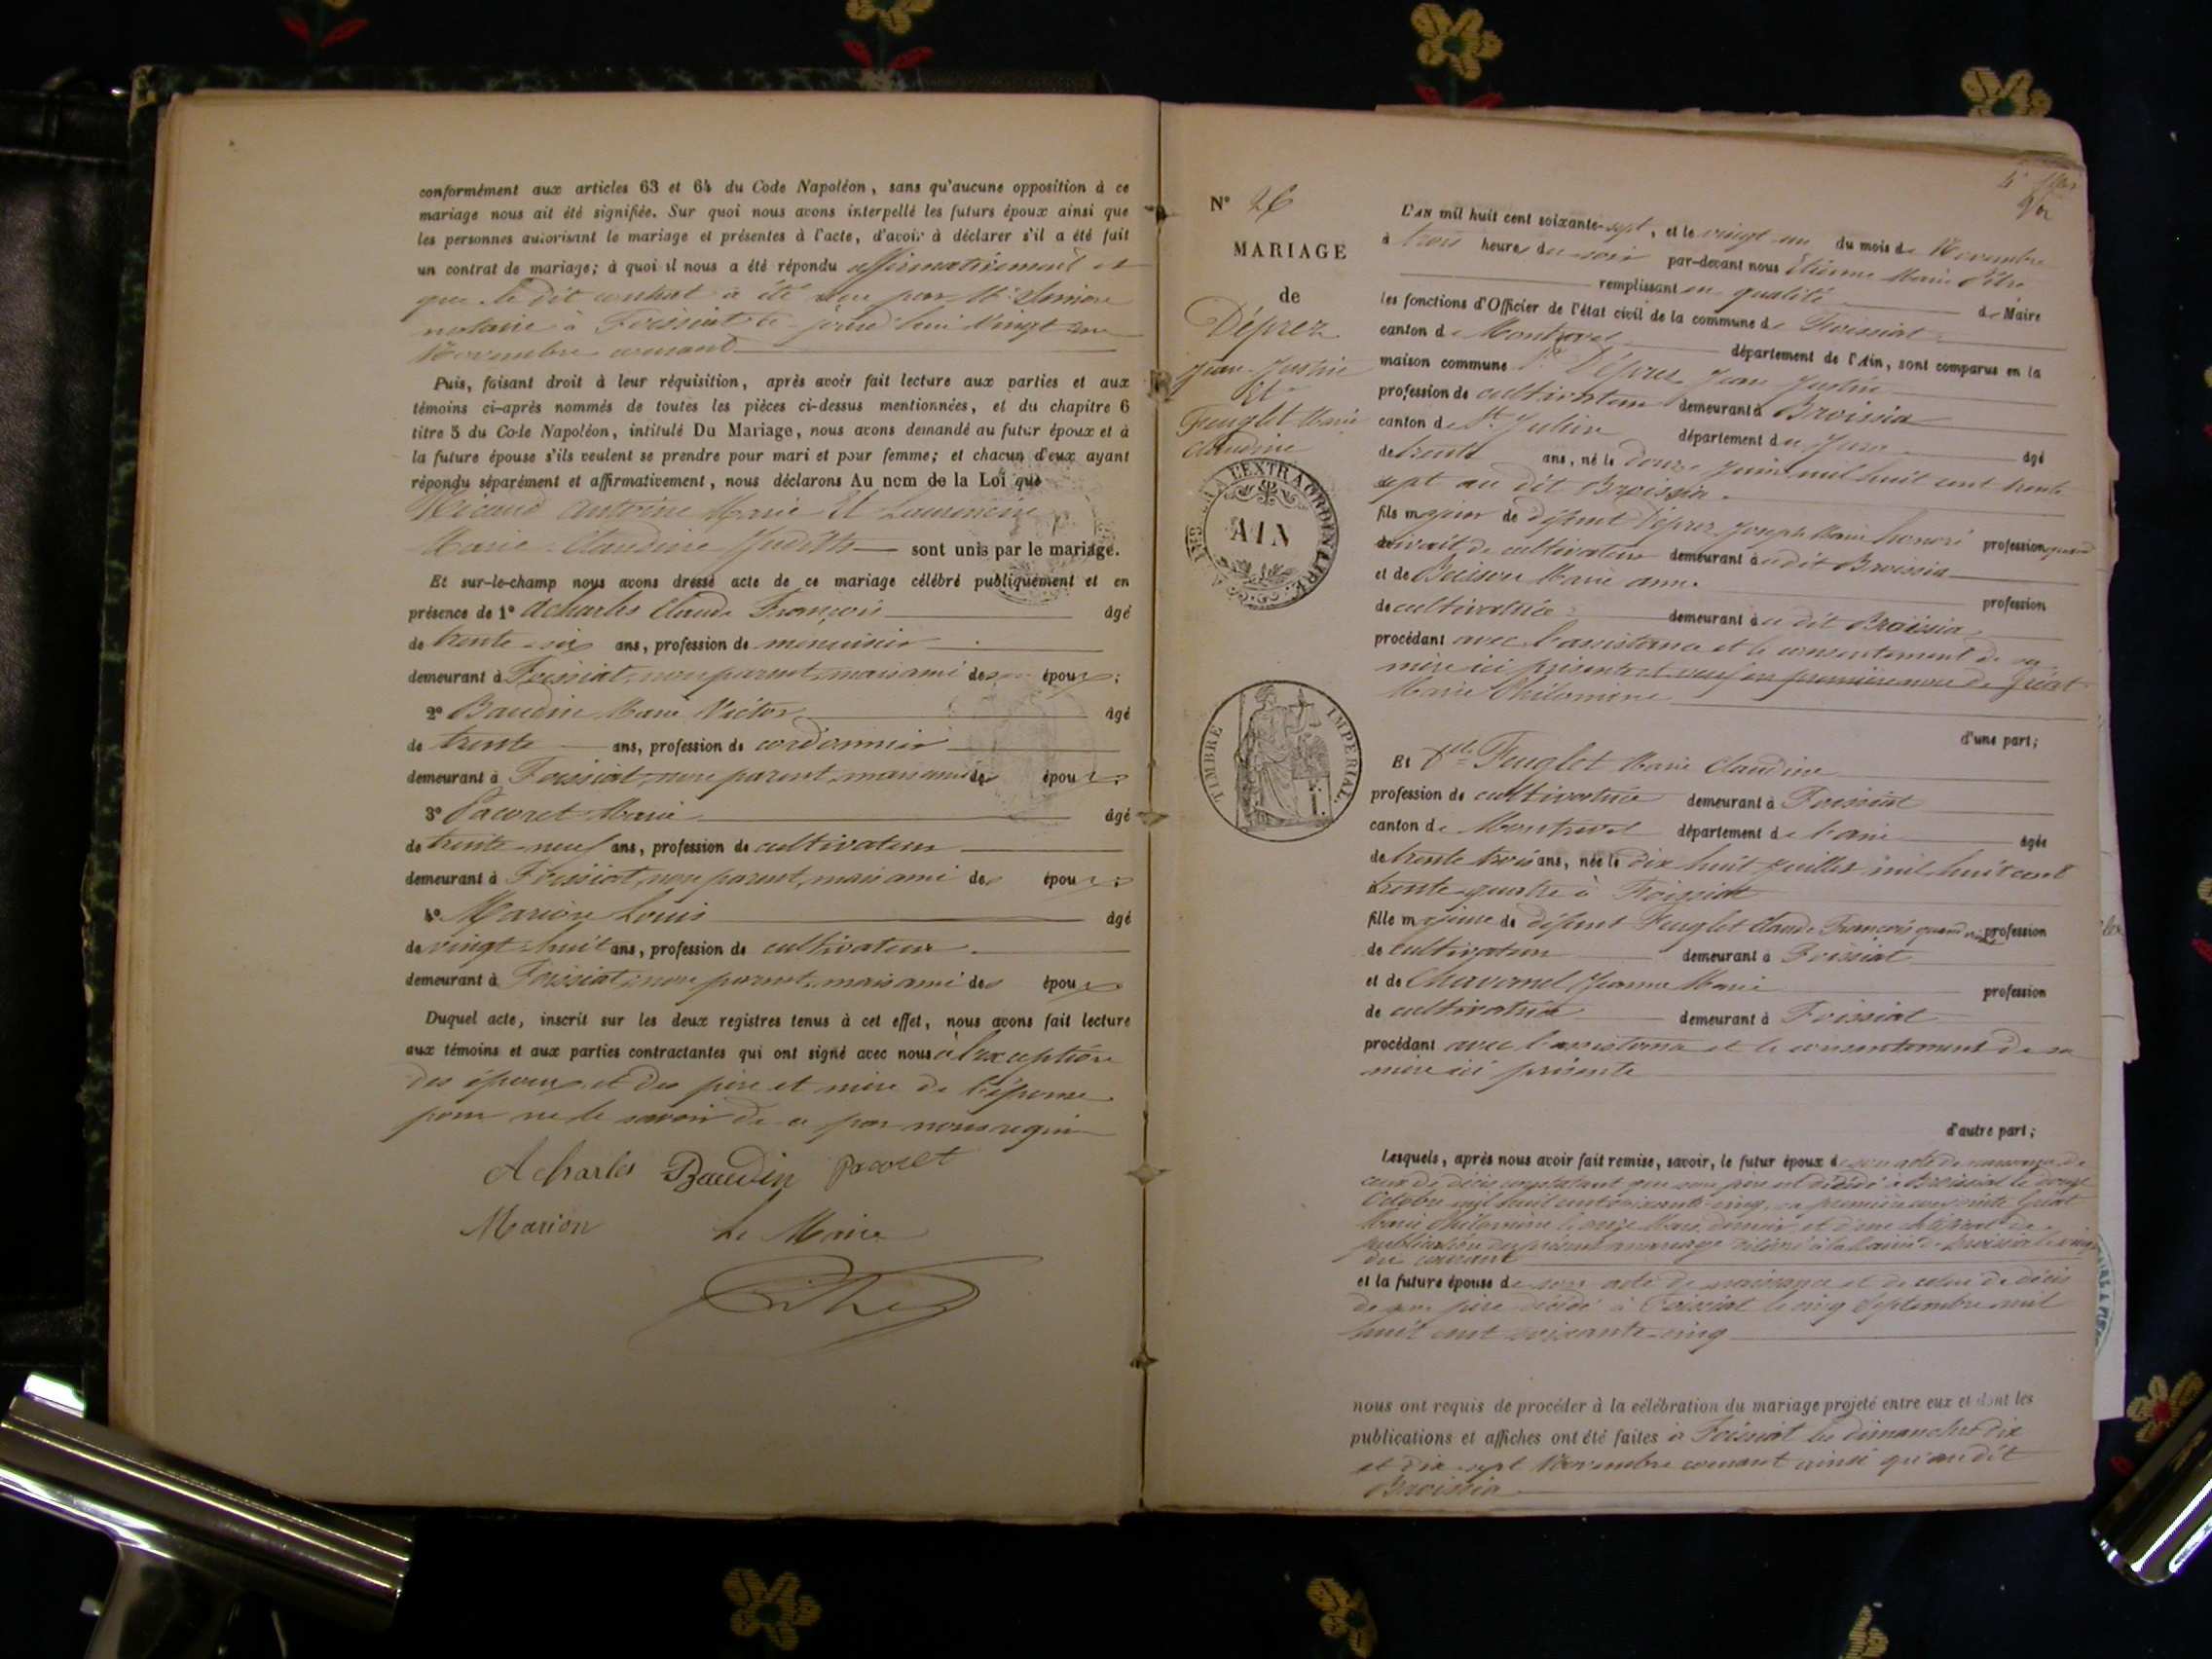 conformément aux articles 63 et 64 du Code Napoléon, sans qu'aucune opposition à ce
mariage nous ait été signifiée. Sur quoi nous avons interpellé les futurs époux ainsi que
les personnes autorisant le mariage et présentes à l'acte, d'avoir à déclarer s'il a été fait
un contrat de mariage; à quoi il nous a été répondu affirmativement et
que le dit contrat a été reçu par Me
notaire à Foissiat le jourd'hui vingt un
Novembre courant
Puis, faisant droit à leur réquisition, après avoir fait lecture aux parties et aux
témoins ci-après nommés de toutes les pièces ci-dessus mentionnées, et du chapitre 6
titre 5 du Code Napoléon, intitulé Du Mariage, nous avons demandé au futur époux et à
la future épouse s'ils veulent se prendre pour mari et pour femme; et chacun d'eux ayant
répondu séparément et affirmativement, nous déclarons Au nom de la Loi que
Antoine Marie Et
Marie Claudine Judith sont unis par le mariage.
Et sur-le-champ nous avons dressé acte de ce mariage célébré publiquement et en
présence de 1° Acharles Claude François âgé
de trente-six ans, profession de menuisier
demeurant à Foissiat, non parent, mais ami des époux;
2° Baudin Marie Victor âgé
de trente ans, profession de cordonnier
demeurant à Foissiat, non parent, mais ami des époux;
3° Pacoret Marie âgé
de trente-neuf ans, profession de cultivateur
demeurant à Foissiat, non parent, mais ami des époux;
4° Marion Louis âgé
de vingt-huit ans, profession de cultivateur
demeurant à Foissiat, non parent, mais ami des époux
Duquel acte, inscrit sur les deux registres tenus à cet effet, nous avons fait lecture
aux témoins et aux parties contractantes qui ont signé avec nous à l'exception
des époux et des père et mère de l'épouse
pour ne le savoir de ce par nous requis
Acharles Baudin Pacoret
Marion Le Maire
N° 26
MARIAGE
de
Déprez
Jean Justin
Et
Feuglet Marie
Claudine
A L'EXTRAORDINAIRE
AIN
TIMBRE IMPERIAL
L'AN mil huit cent soixante-sept, et le vingt un du mois de Novembre
à trois heures du soir par-devant nous Etienne Marie Pitre
remplissant en qualité de Maire
les fonctions d'Officier de l'état civil de la commune de Foissiat
canton de Montrevel département de l'Ain, sont comparus en la
maison commune Déprez Jean Justin
profession de cultivateur demeurant à Broissia
canton de St Julien département du Jura âgé
de trente ans, né le douze Juin mil huit cent trente
sept au dit Broissia
fils majeur de défunt Déprez Joseph Marie honoré profession quand
vivait de cultivateur demeurant au dit Broissia
et de Buison Marie anne profession
de cultivatrice demeurant au dit Broissia
procédant avec l'assistance et le consentement de sa
mère ici présente et veuf en première noce de Gréat
Marie Philomène
d'une part;
Et Dlle Feuglet Marie Claudine
profession de cultivatrice demeurant à Foissiat
canton de Montrevel département de l'ain âgée
de trente trois ans, née le dix huit Juillet mil huit cent
trente-quatre à Foissiat
fille majeure de défunt Feuglet Claude François quand vivait profession
de cultivateur demeurant à Foissiat
et de Chavanel Jeanne Marie profession
de cultivatrice demeurant à Foissiat
procédant avec l'assistance et le consentement de sa
mère ici présente
d'autre part;
Lesquels, après nous avoir fait remise, savoir, le futur époux de son acte de naissance, de
ceux de décès constatant que son père est décédé à Broissiat le douze
Octobre mil huit cent soixante cinq, sa première Gréat
Marie Philomène le onze Mars dernier et d'un certificat de
publication du présent mariage délivré à la Mairie de Broissia le vingt
du courant
et la future épouse de son acte de naissance et de celui de décès
de son père décédé à Foissiat le cinq Septembre mil
huit cent soixante-cinq
nous ont requis de procéder à la célébration du mariage projeté entre eux et dont les
publications et affiches ont été faites à Foissiat les dimanches dix
et dix-sept Novembre courant ainsi qu'au dit
Broissia